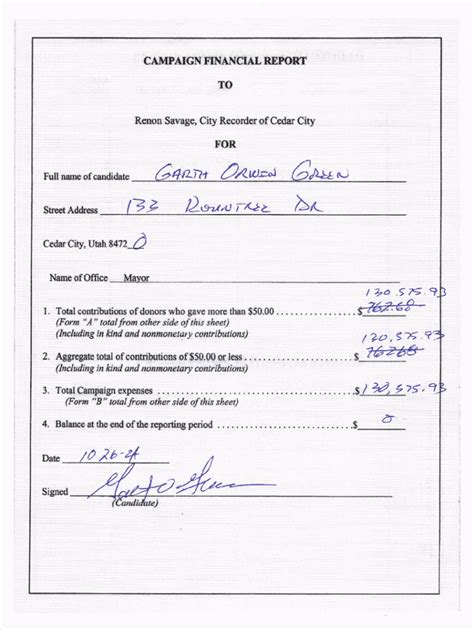 CAMPAIGN FINANCIAL REPORT
TO
Renon Savage, City Recorder of Cedar City
FOR
Full name of candidate GARTH ORWEN GREEN
Street Address 133 ROUNTREE DR
Cedar City, Utah 84720
Name of Office Mayor
130,575.93
1. Total contributions of donors who gave more than $50.00 $
(Form "A" total from other side of this sheet)
(Including in kind and nonmonetary contributions)
130,575.93
2. Aggregate total of contributions of $50.00 or less $
(Including in kind and nonmonetary contributions)
3. Total Campaign expenses $130,575.93
(Form "B" total from other side of this sheet)
4. Balance at the end of the reporting period $ 0
Date 10 26-21
Signed
(Candidate)